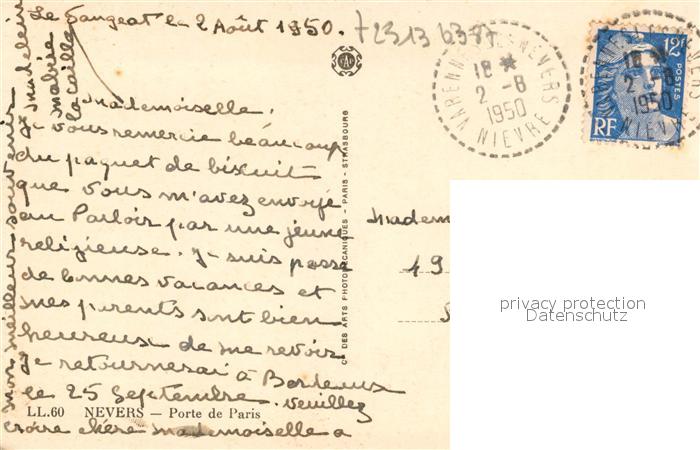 Le Sangeat le 2 Août 1950.
72313 6377
Mademoiselle.
Je vous remercie beaucoup
du paquet de biscuit
que vous m'avez envoyé
au Parloir par une jeune
religieuse. Je suis passé
de bonnes vacances et
mes parents sont bien
heureux de me revoir
Je retournerai à Bordeaux
le 25 Septembre. Veuillez
croire chère Mademoiselle a
mon meilleur souvenir
Madeleine
Mabrie
Lacaille
LL.60 NEVERS — Porte de Paris
Cie DES ARTS PHOTOMÉCANIQUES - PARIS - STRASBOURG
VARENNES-LES-NEVERS
18 *
2 -8
1950
NIEVRE
12F
POSTES
RF
18 *
2 -8
1950
NIEVRE
Madem
49
S
privacy protection
Datenschutz